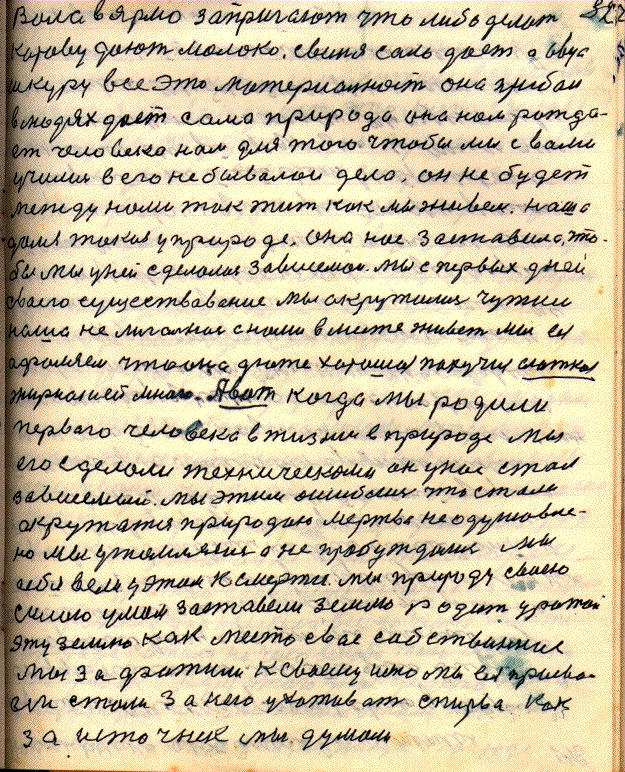 Вола в ярмо запригают что либо делат 
карову дают молоко. свиня сало дает а овца
шкуру все это материалност она
в людях дает сама природа она нам рожда-
ет человека нам для того чтобы мы с вами
учили в его небывалои дело, он не будет
между нами так жит как мы живем. наша
доля такая у природе. она нас заставила, что-
бы мы у ней сделалис зависемои. мы с первых днеи
своего существавание мы окружилис чужим
наша не ... с нами вместе живет мы ея
что она дюже хорошая пахучия слаткая
жирная ией много. А вот когда мы родили
перваго человека в жизни в природе мы
его сделали техническоми он у нас стал
зависемыи. мы этим ошиблис что стали
окружатся природаю мертва не одушовле-
но мы утомлялис а не пробуждалис мы
себя вели у этом к смерти. мы природу своею
силою умом заставели землю родит урожаи
эту землю как место свае сабственное
мы к своему имо мы ея присво-
или стали за него ухажеват сперва. как
за источнек мы думали